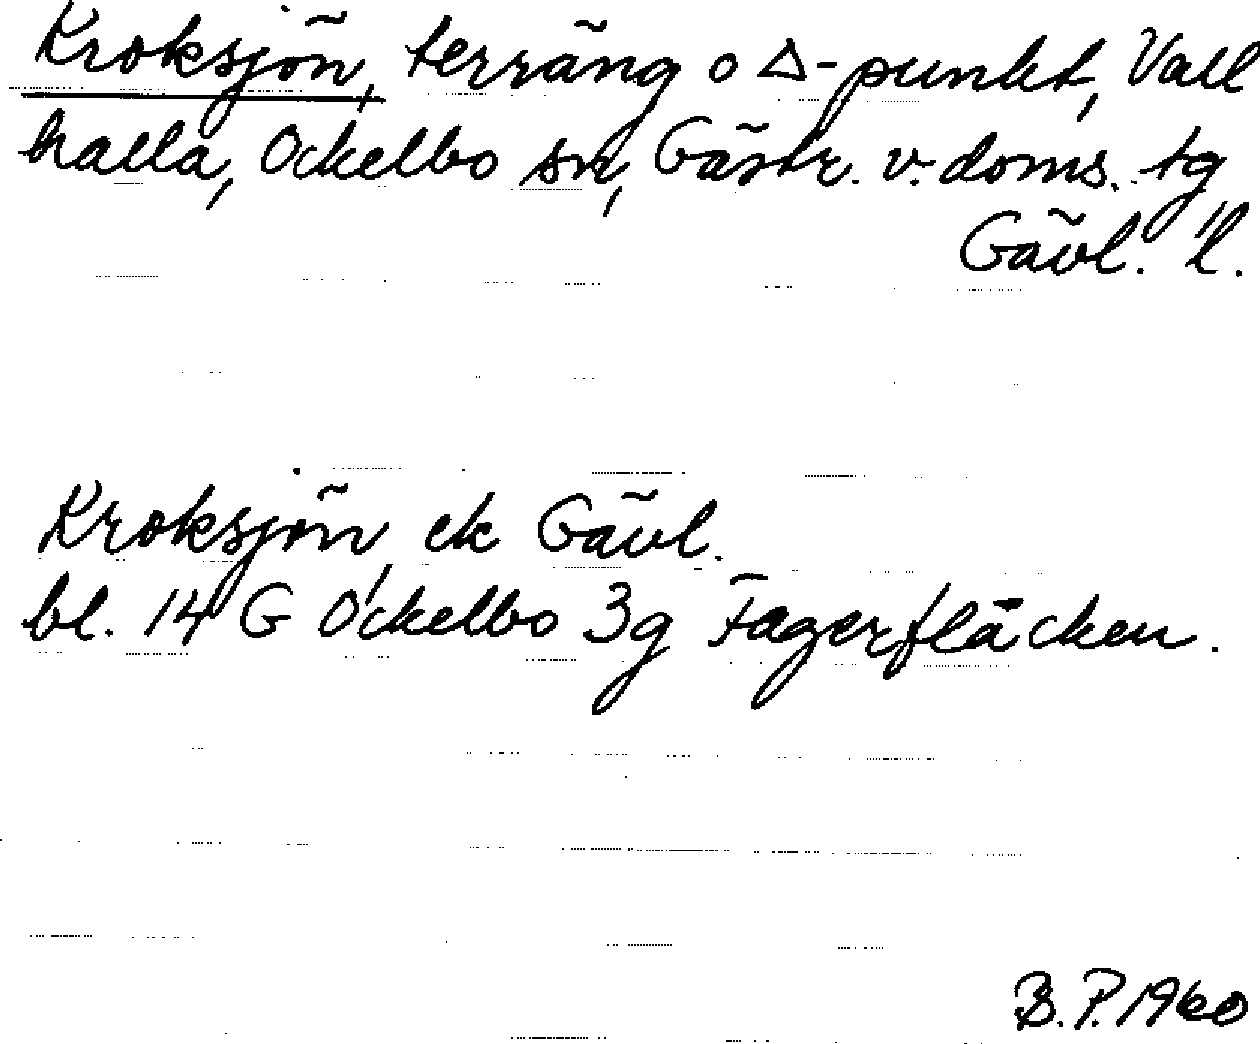 Kroksjön, terräng o Δ-punkt, Vall
halla, Ockelbo sn, Gästr. v. doms. tg
Gävl. l.
Kroksjön, ek Gävl.
bl. 14 G Ockelbo 3g Fagerfläcken.
B.P. 1960